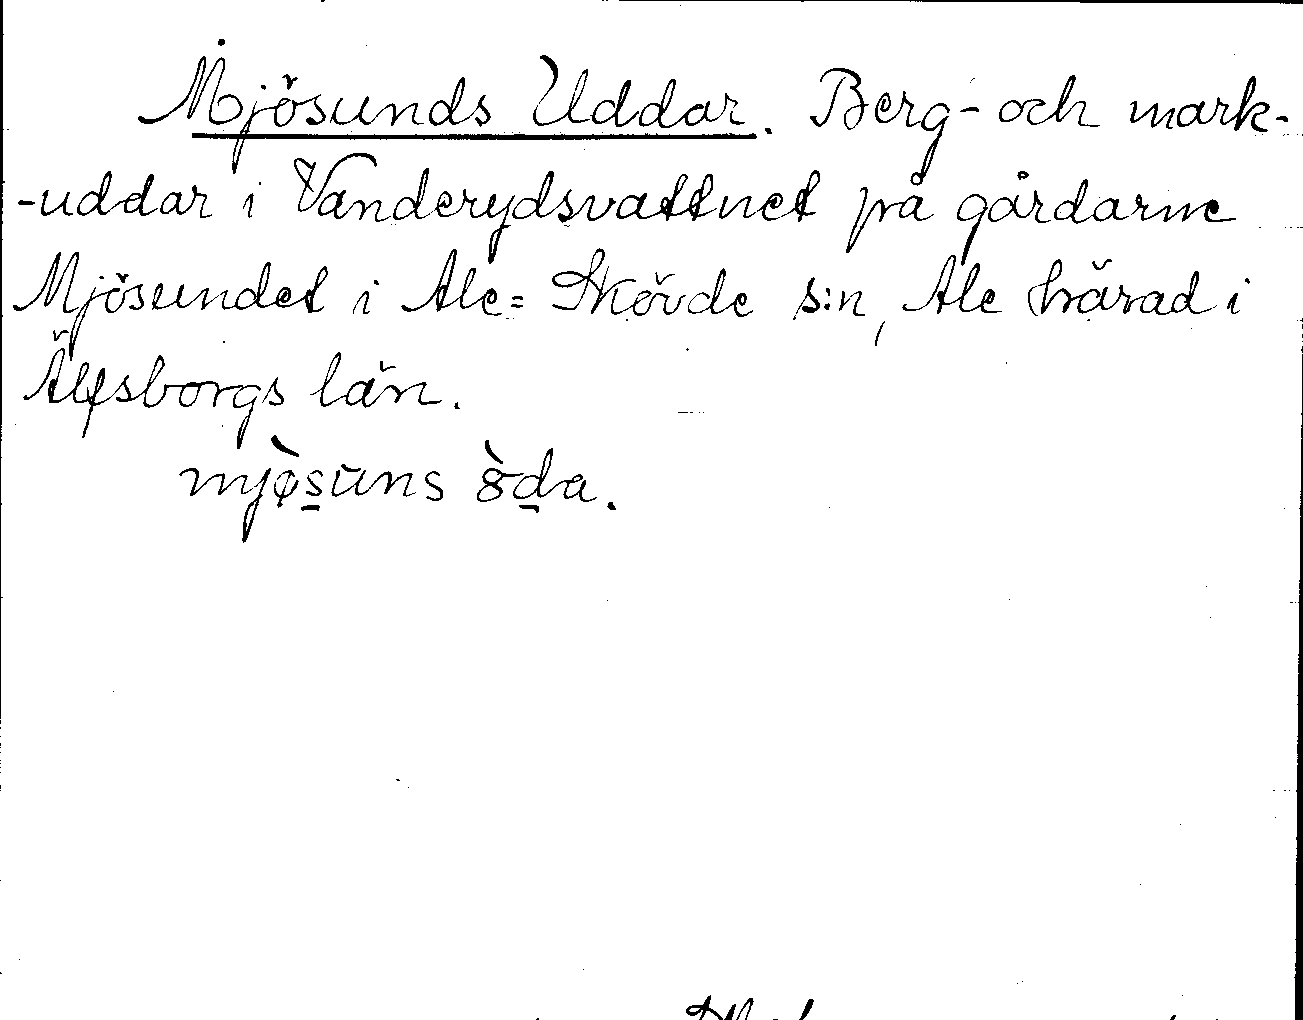 Mjösunds Uddar. Berg- och mark-
-uddar i Vanderydsvattnet på gårdarne
Mjösundet i Ale= Skövde s:n, Ale härad i
Älfsborgs län.
mjø̀suns 8̀da.